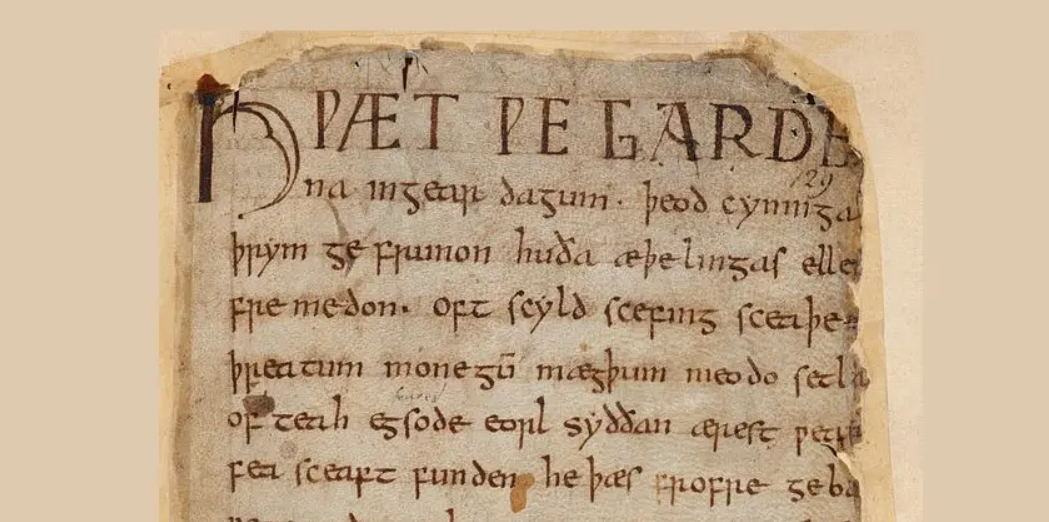 HǷÆT ǷE GARDE
129
na ingear dagum. þeod cyninga
þrym ge frunon huða æþelingas elle
fre medon. oft scyld scefing sceaþe
þreatum monegū mægþum meodo setla
of teah egsode eorl syððan ærest
fea sceaft funden he þæs frofre geba